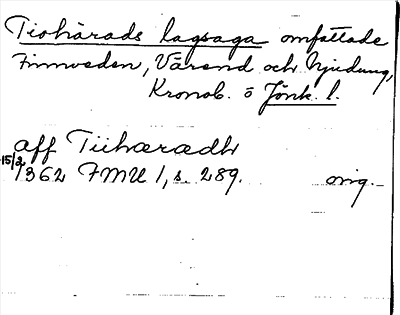 Tiohärads lagsaga omfattade
Finnveden, Värend och Njudung,
Kronob. o Jönk. l.
aff Tiihæradh
15/2 1362 FMU 1, s. 289. orig.